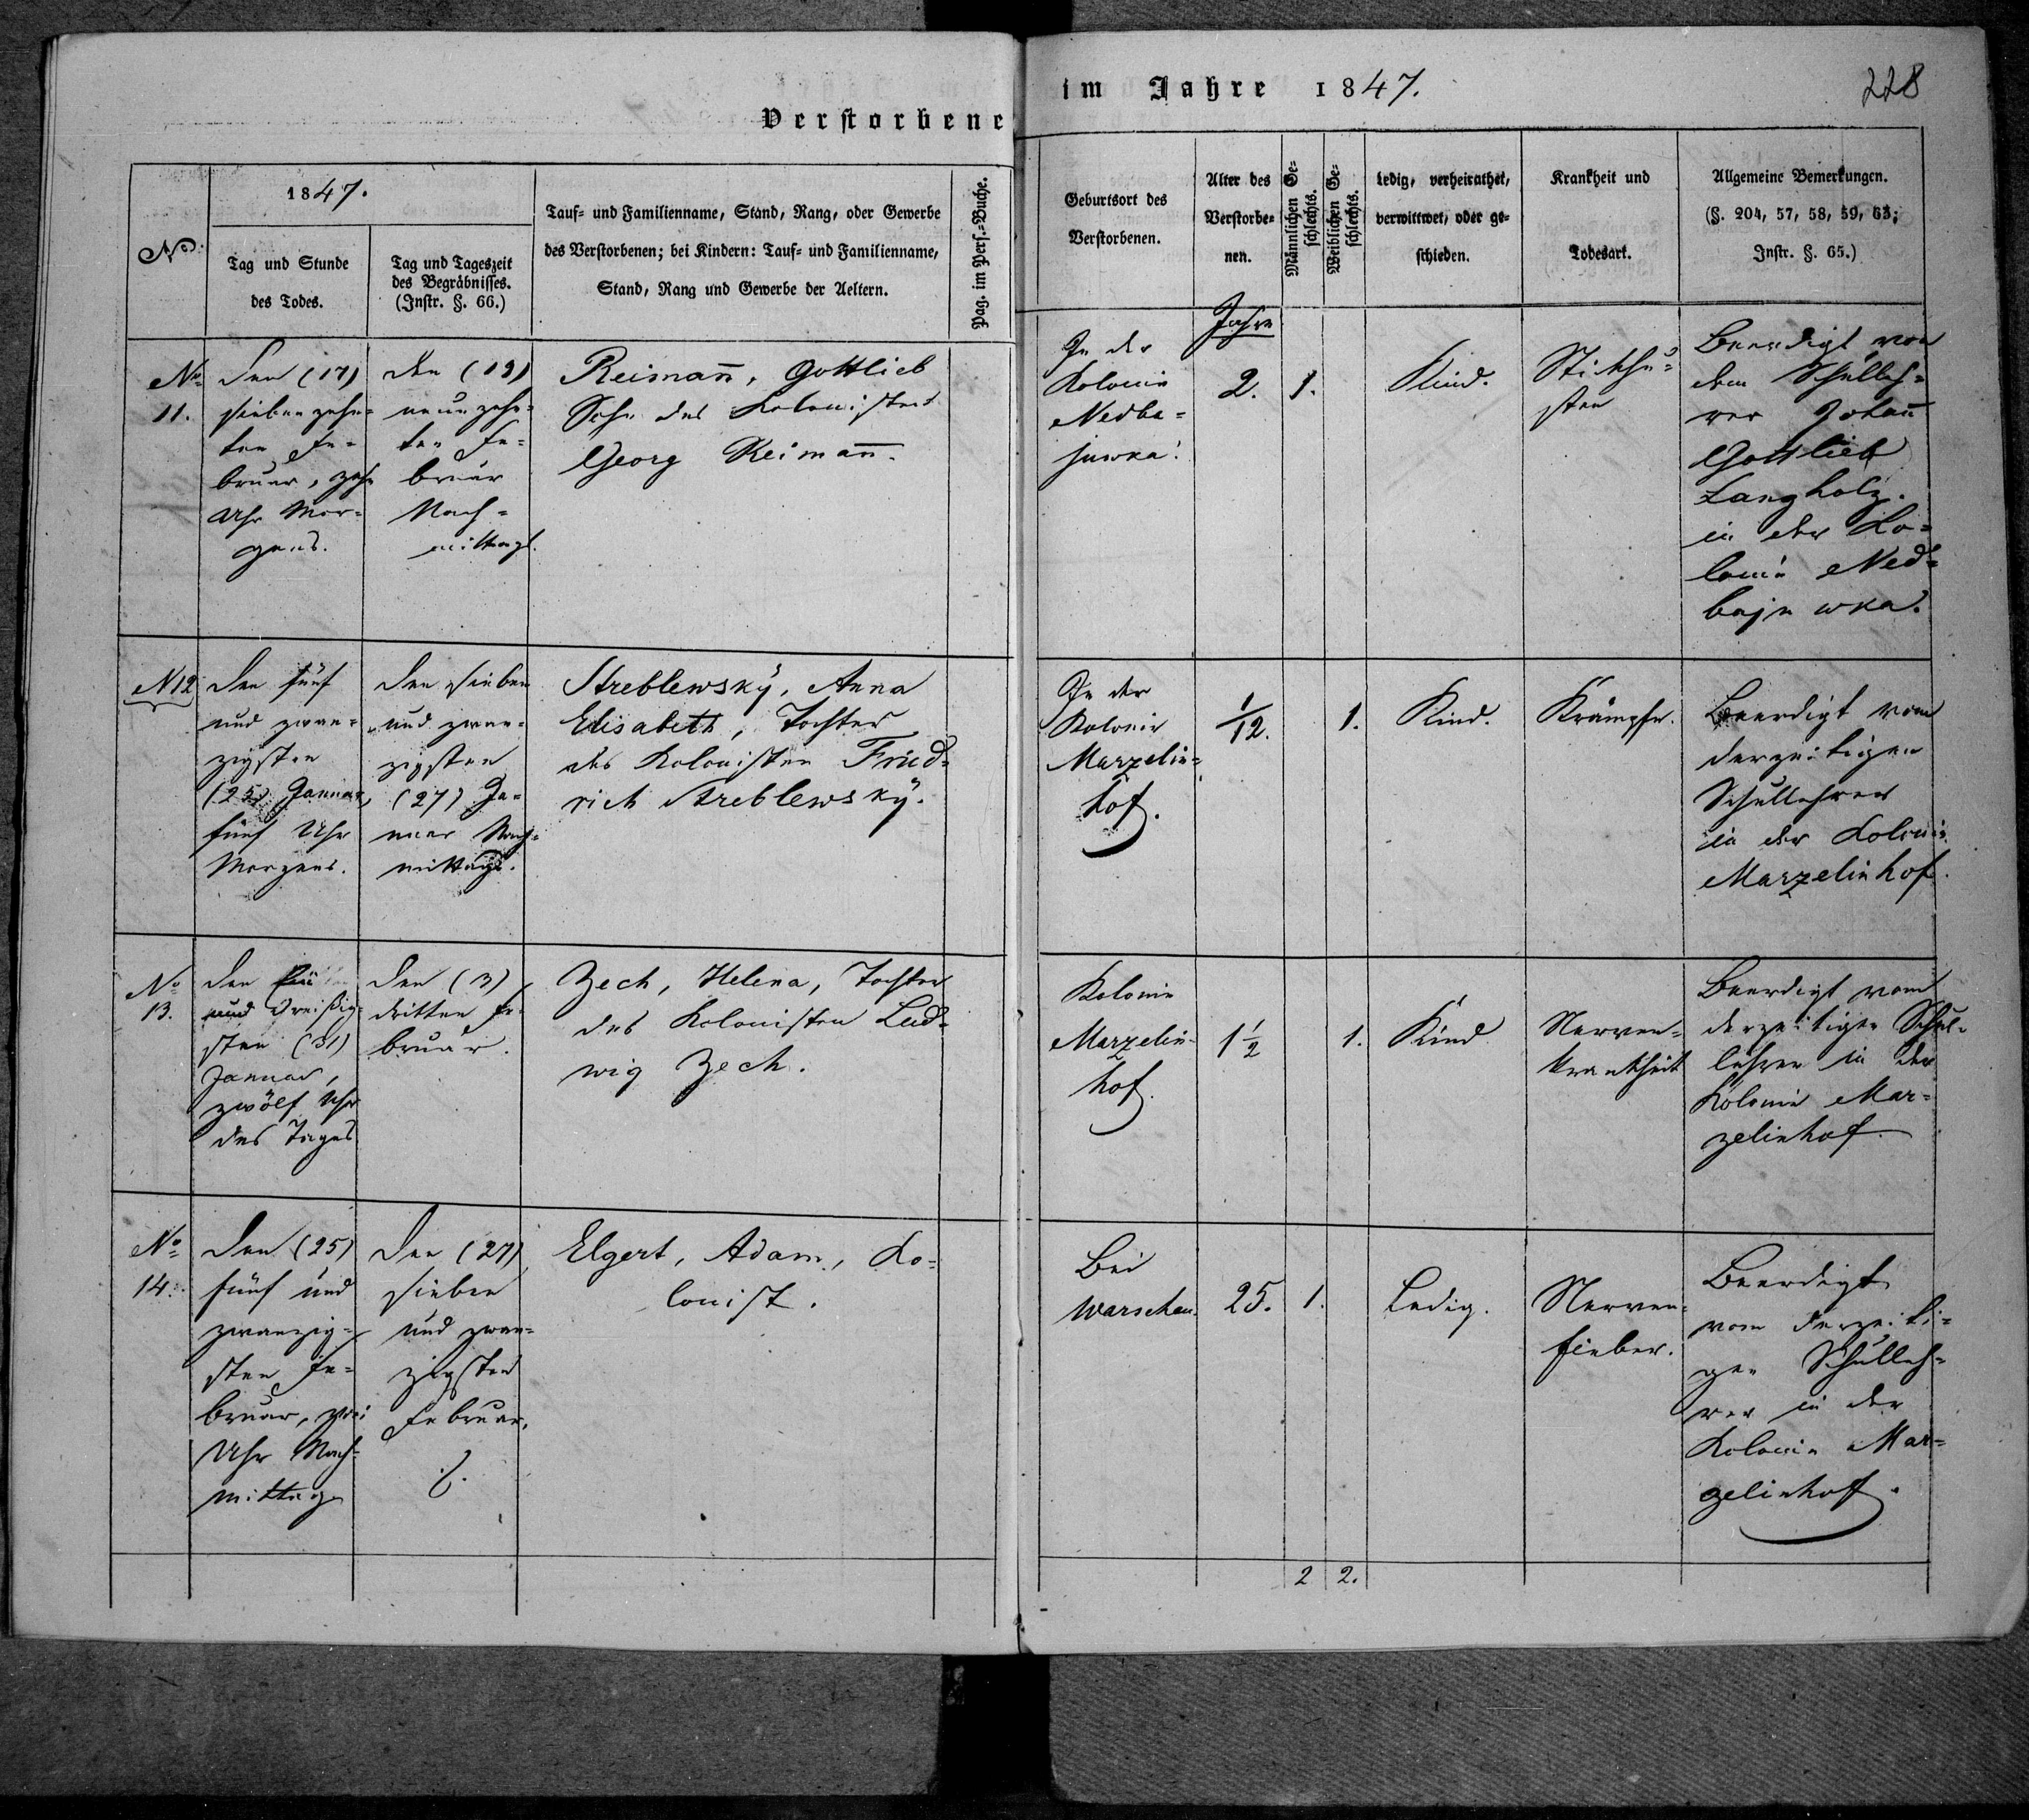 Verstorbene
im Jahre 1847.
228
No.
1847.
Tag und Stunde
des Todes.
Tag und Tageszeit
des Begräbnisses.
(Instr. §. 66.)
Tauf= und Familienname, Stand, Rang, oder Gewerbe
des Verstorbenen; bei Kindern: Tauf= und Familienname,
Stand, Rang und Gewerbe der Aeltern.
Pag. im Pers.=Buche.
Geburtsort des
Verstorbenen.
Alter des
Verstorbe=
nen.
Männlichen Ge=
schlechts.
Weiblichen Ge=
schlechts.
Ledig, verheirathet,
verwittwet, oder ge=
schieden.
Krankheit und
Todesart.
Allgemeine Bemerkungen.
(§. 204, 57, 58, 59, 63;
Instr. §. 65.)
No
11.
Den (17)
siebenzehn=
ten Fe=
bruar, zehn
Uhr Mor=
gens.
Den (19)
neunzehn=
ten Fe=
bruar
Nach=
mittags.
Reimañ, Gottlieb
Sohn des Kolonisten
Georg Reimañ.
In der
Kolonie
Nedba=
juwka.
Jahre
2.
1.
Kind.
Stickhu=
sten
Beerdigt von
dem Schulleh=
rer Johañ
Gottlieb
Langholz.
in der Ko=
lonie Ned=
baju wka.
N 12
Den fünf
und zwan=
zigsten
(25) Januar,
fünf Uhr
Morgens.
Den sieben
und zwan=
zigsten
(27) Ja=
nuar Nach=
mittags.
Streblewskÿ, Anna
Elisabeth, Tochter
des Kolonisten Fried=
rich Streblewskÿ.
In der
Kolonie
Marzelin=
hof.
1/12.
1.
Kind.
Krämpfe.
Beerdigt vom
derzeitigen
Schullehrer
in der Kolonie
Marzelinhof.
No
13.
Den
und dreißig=
sten (31)
Januar,
zwölf Uhr
des Tages
Den (3)
dritten Fe=
bruar.
Zech, Helena, Tochter
des Kolonisten Lud=
wig Zech.
Kolonie
Marzelin=
hof.
1 1/2
1.
Kind
Nerven=
krankheit
Beerdigt vom
derzeitigen Schul=
lehrer in der
Kolonie Mar=
zelinhof.
No
14.
Den (25)
fünf und
zwanzig=
sten Fe=
bruar, zwei
Uhr Nach=
mittags
Den (27)
sieben
und zwan=
zigsten
Februar.
Elgert, Adam, Ko=
lonist.
Bei
Warschau.
25.
1.
Ledig.
Nerven=
fieber.
Beerdigt
vom derzeiti=
gen Schulleh=
rer in der
Kolonie Mar=
zelinhof.
2
2.